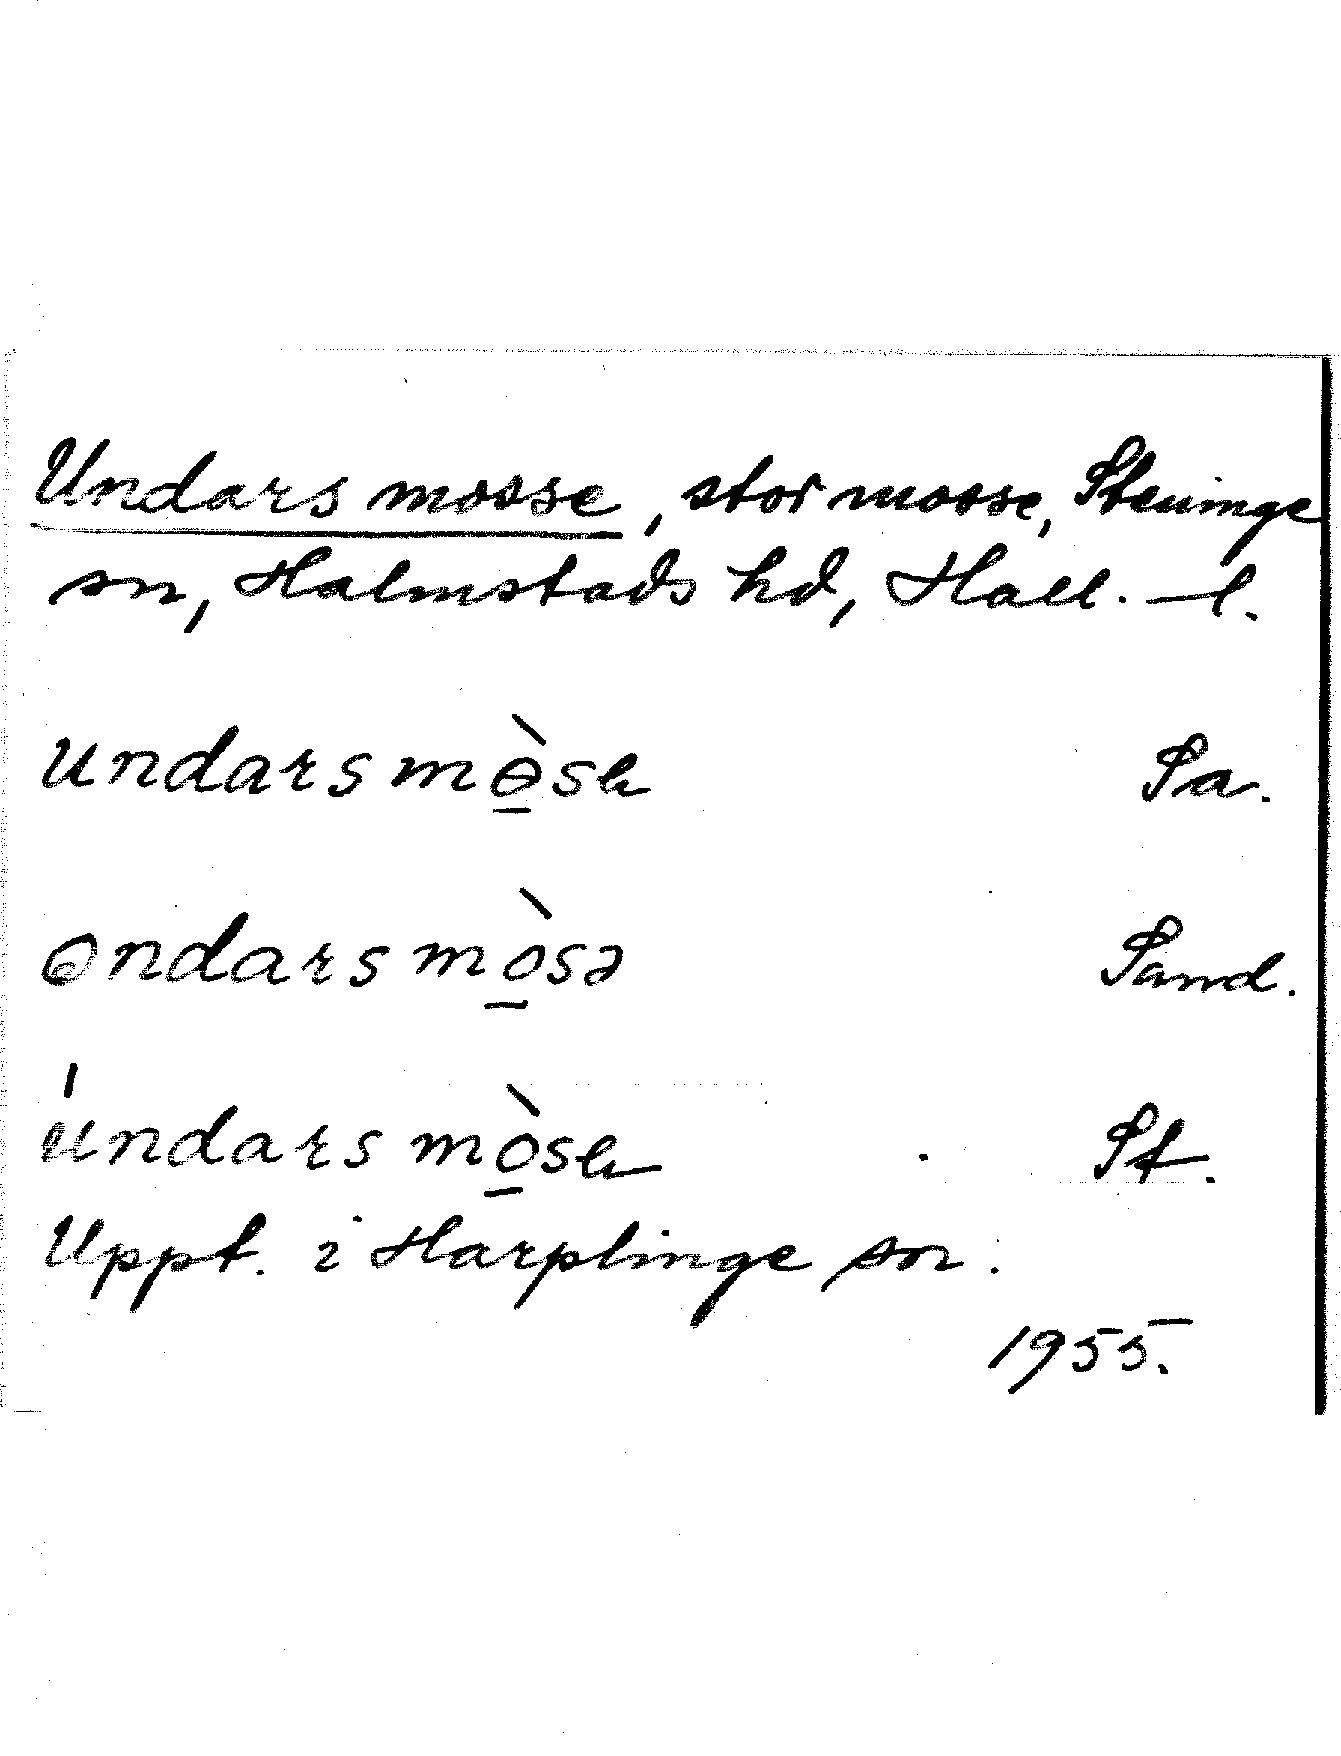 Undars mosse, stor mosse, Steninge
sn, Halmstads hd, Hall. l.
undars mòsa Sa.
ondars mòsə Sand.
úndars mòsa St.
Uppt. i Harplinge sn.
1955.